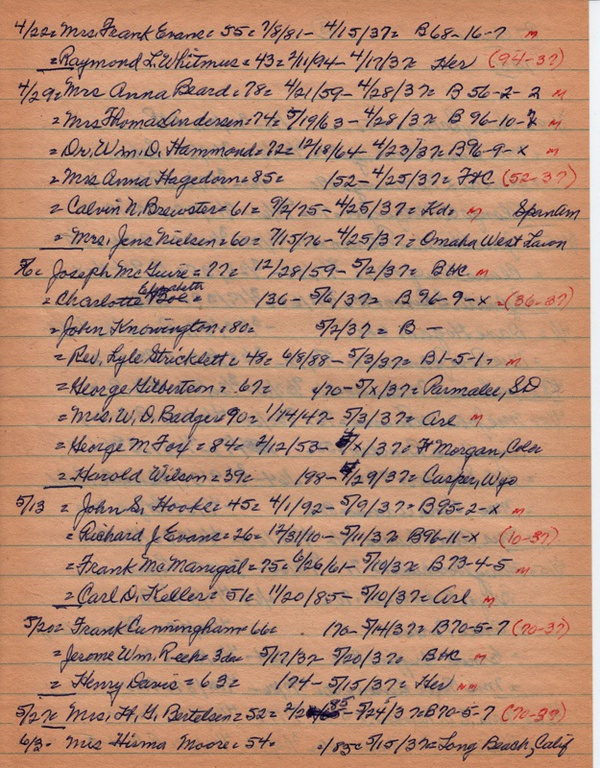 4/22= Mrs Frank Evans= 55= 7/8/81- 4/15/37= B68-16-7 M
=Raymond L. Whitmus= 43= 2/11/94- 4/17/37= Her (94-37)
4/29= Mrs Anna Beard= 78= 4/21/59- 4/28/37= B 56-2-2 M
=Mrs Thomas Anderson= 74= 5/19/63- 4/28/37= B 96-10- M
=Dr. Wm. D. Hammond= 72= 12/18/64- 4/23/37= B96-9-x M
=Mrs Anna Hagedorn= 85= 152- 4/25/37= FHC (52-37)
=Calvin N. Brewster= 61= 9/2/75- 4/25/37= Kd= M SpanAm
=Mrs. Jens Nielsen= 60= 7/15/76- 4/25/37= Omaha West Lawn
5/6= Joseph McGuire= 77= 12/28/59- 5/2/37= BHC M
=Charlotte Elizabeth Boe= 136- 5/6/37= B 96-9-x= (36-37)
=John Knowington= 80= 5/2/37= B -
=Rev. Lyle Stricklett= 48= 6/8/88- 5/3/37= B1-5-1= M
=George Gilbertson= 67= 170- 5/x/37= Parmalee, SD
=Mrs. W. D. Badger= 90= 1/14/47- 5/3/37= Arl M
=George M Foy= 84= 2/12/53- 5/x/37= Ft Morgan, Colo
=Harold Wilson= 39= 198- 4/29/37= Casper, Wyo
5/13 = John S. Hooke= 45= 4/1/92- 5/9/37= B95-2-x M
=Richard J. Evans= 26= 12/31/10- 5/11/37= B96-11-x (10-37)
=Frank McManigal= 75= 6/26/61- 5/10/37= B73-4-5 M
=Carl D. Keller= 51= 11/20/85- 5/10/37= Arl M
5/20= Frank Cunningham= 66= 170- 5/14/37= B70-5-7 (70-37)
=Jerome Wm. Reeh= 3da= 5/17/37- 5/20/37= BHC M
=Henry Davis= 63= 174- 5/15/37= Her
5/27= Mrs. H. G. Bertelsen= 52= 85- 5/24/37= B70-5-7 (70-37)
6/3- Mrs Hirma Moore= 54= =/83= 5/15/37= Long Beach, Calif